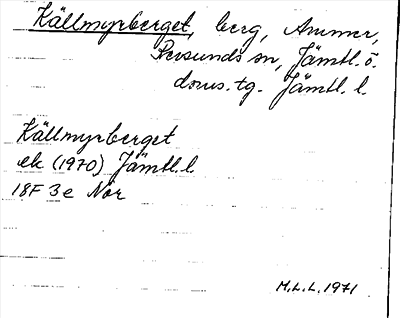 Källmyrberget, berg, Ammer,
Revsunds sn, Jämtl. ö.
doms.tg. Jämtl. l.
Källmyrberget
ek (1970) Jämtl. l.
18F 3e Nör
M.L.L. 1971